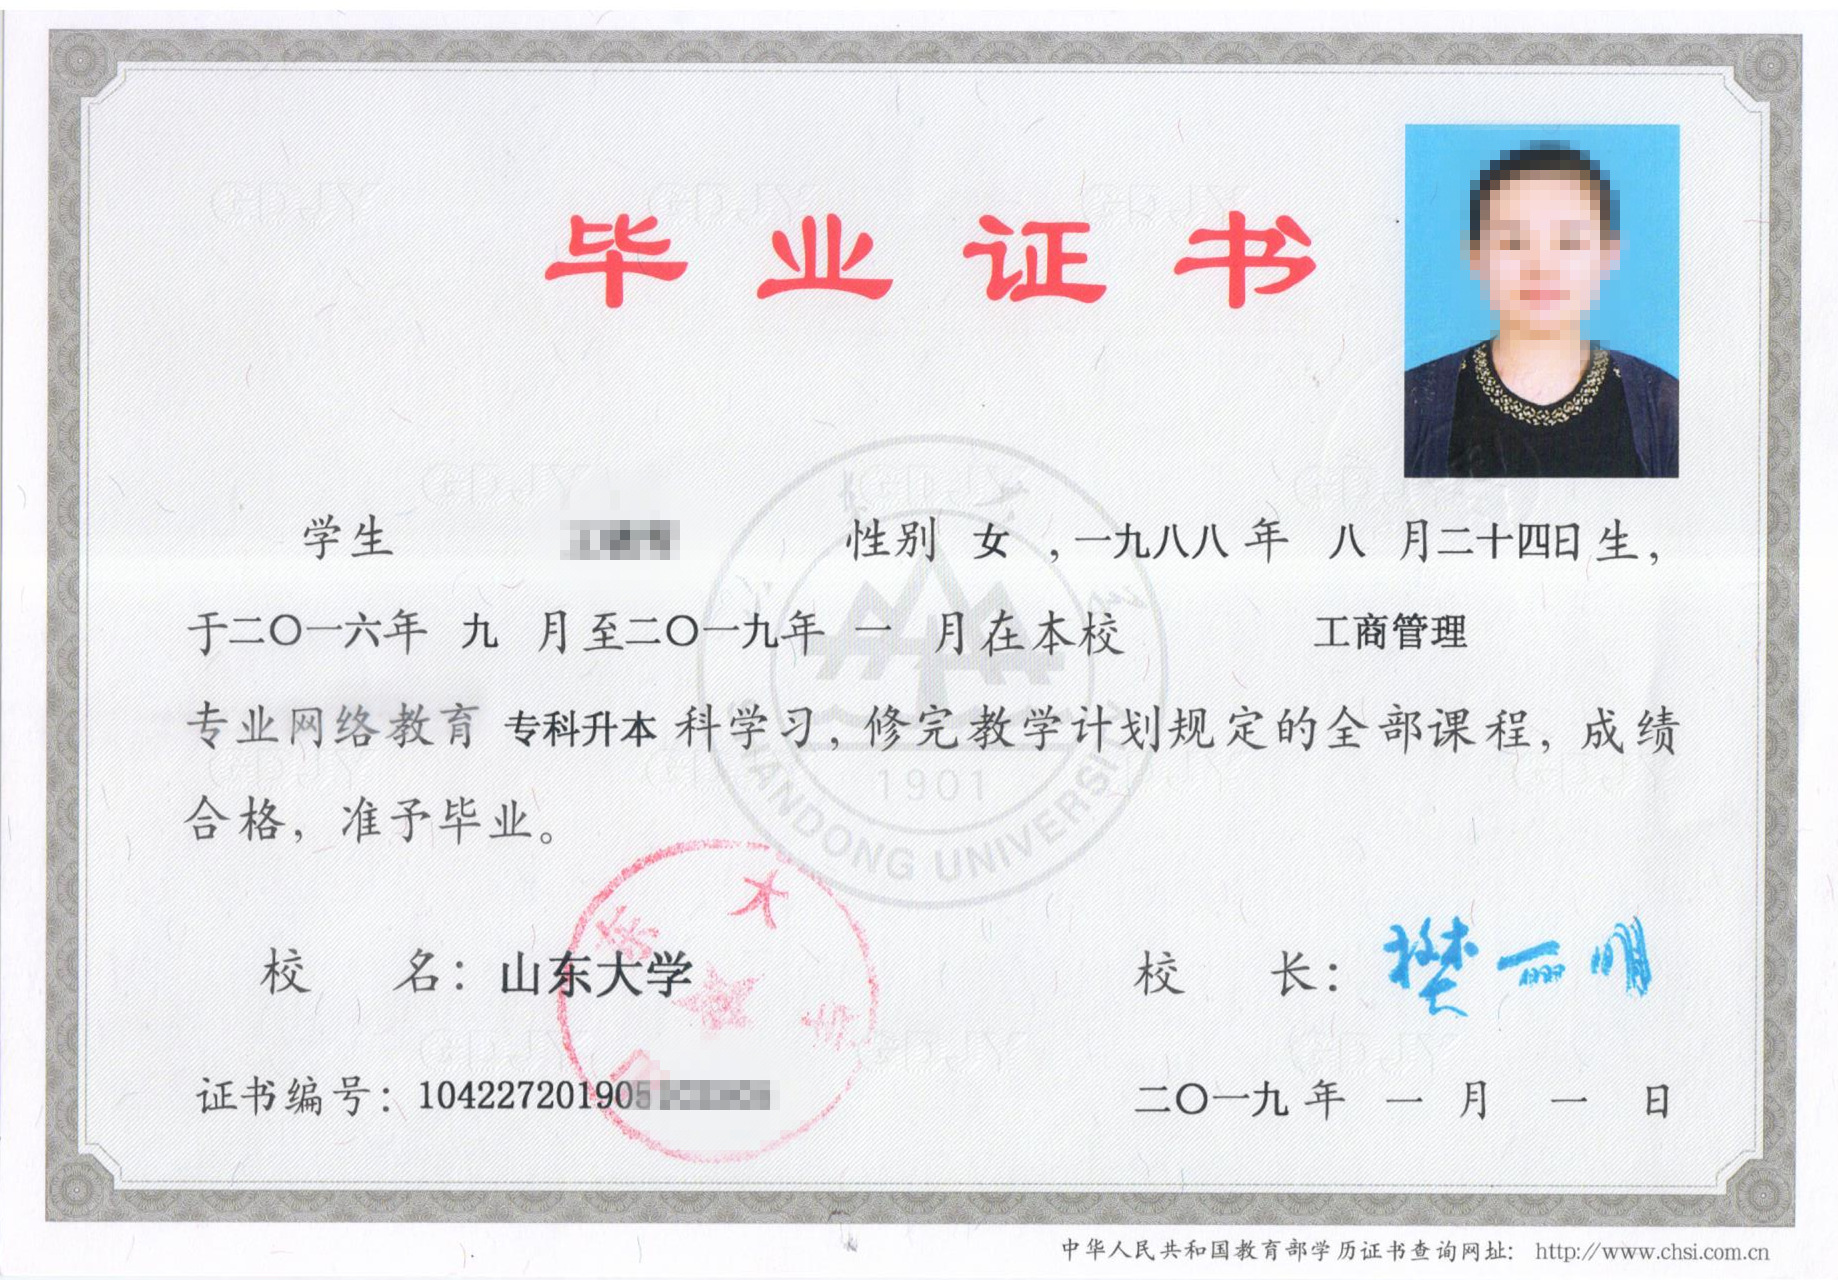 毕业证书
学生 性别 女 ,一九八八年 八 月二十四日生,
于二〇一六年 九 月至二〇一九年 一 月在本校 工商管理
专业网络教育 专科升本 科学习,修完教学计划规定的全部课程,成绩
合格,准予毕业。
1901
SHANDONG UNIVERSITY
校 名:山东大学
校 长:樊丽明
证书编号:104227201905
二〇一九年 一 月 一 日
中华人民共和国教育部学历证书查询网址: http://www.chsi.com.cn